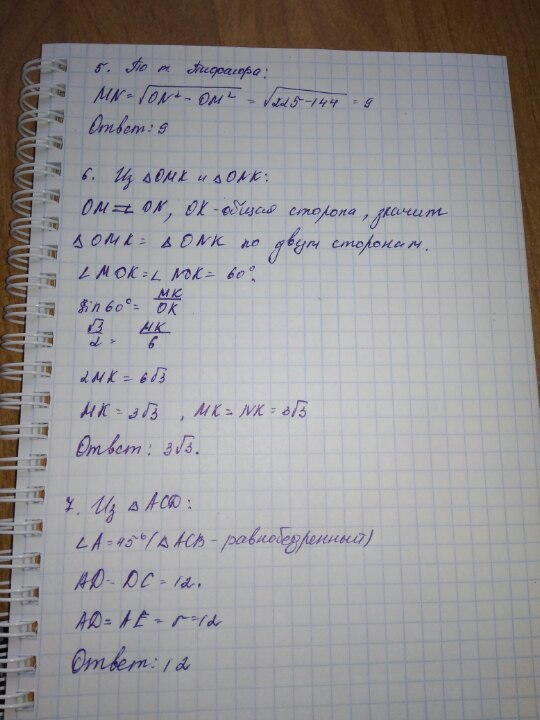 5. По т Пифагора:
MN = √ON² - OM² = √225-144 = 9
Ответ: 9
6. Из △OMK и △ONK:
OM = ON, OK - общая сторона, значит
△OMK = △ONK по двум сторонам.
∠MOK = ∠NOK = 60°.
Sin60° = MK/OK
√3/2 = MK/6
2MK = 6√3
MK = 3√3, MK = NK = 3√3
Ответ: 3√3.
7. Из △ACD:
∠A = 45° (△ACB - равнобедренный)
AD = DC = 12.
AD = AE = r = 12
Ответ: 12